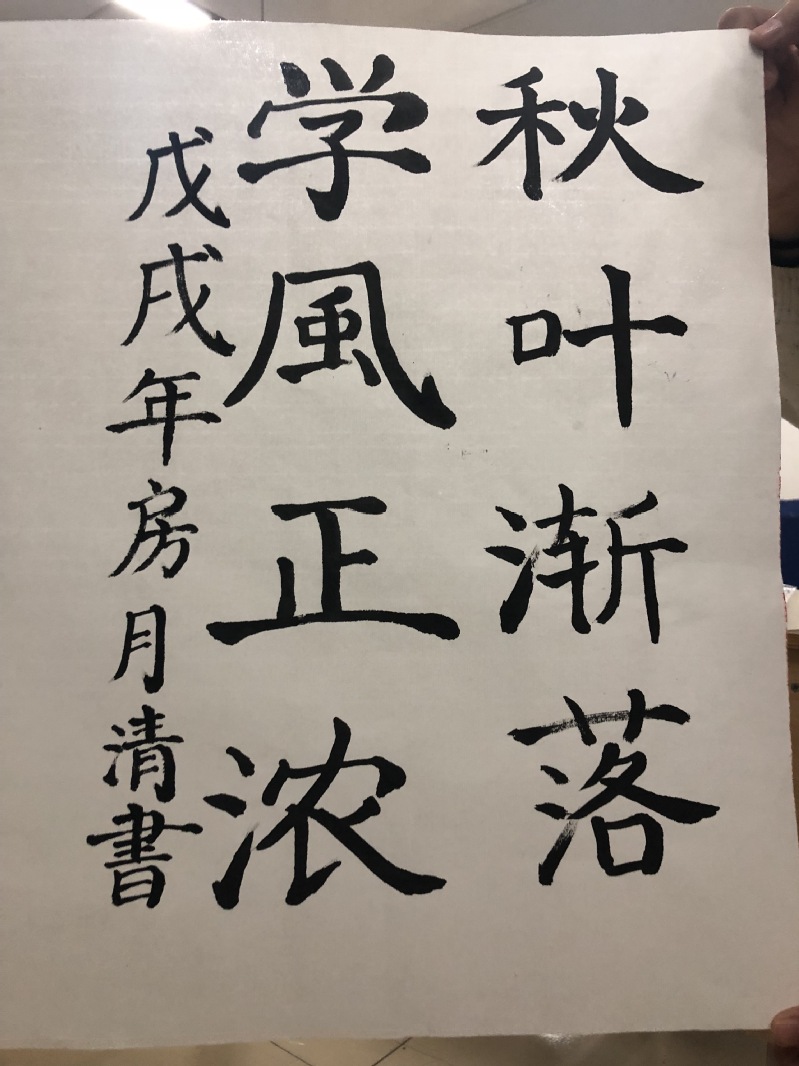 秋叶渐落
学風正浓
戊戌年房月清書